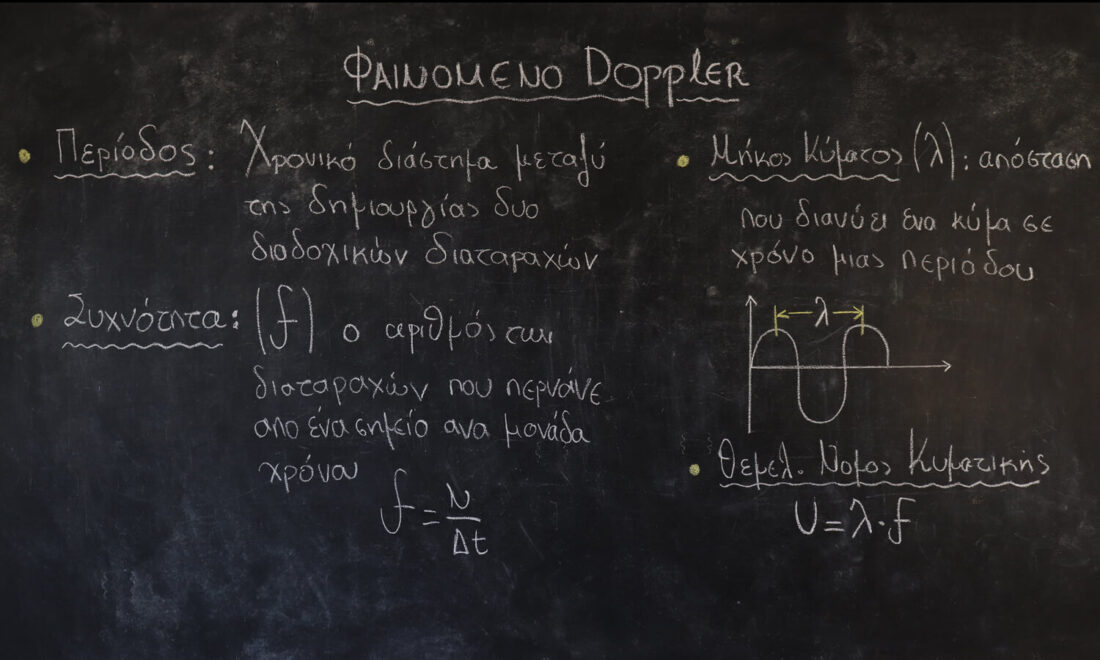 Φαινομενο Doppler
• Περίοδος: Χρονικό διάστημα μεταξύ
της δημιουργίας δυο
διαδοχικών διαταραχών
• Συχνότητα: (f) ο αριθμός των
διαταραχών που περνάνε
απο ένα σημείο ανα μονάδα
χρόνου
f = N/Δt
• Μήκος Κύματος (λ): απόσταση
που διανύει ενα κύμα σε
χρόνο μιας περιόδου
λ
• Θεμελ. Νομος Κυματικής
υ = λ · f